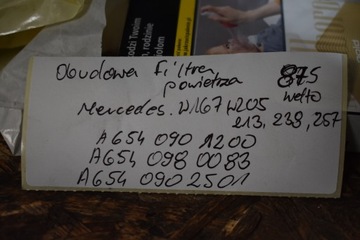 odzi Twoim
rodzinie
ołom
Obudowa filtra
powietrza 875
netto
Mercedes. W167 W205
213, 238, 257
A654 090 1200
A654 098 0083
A654 090 2501